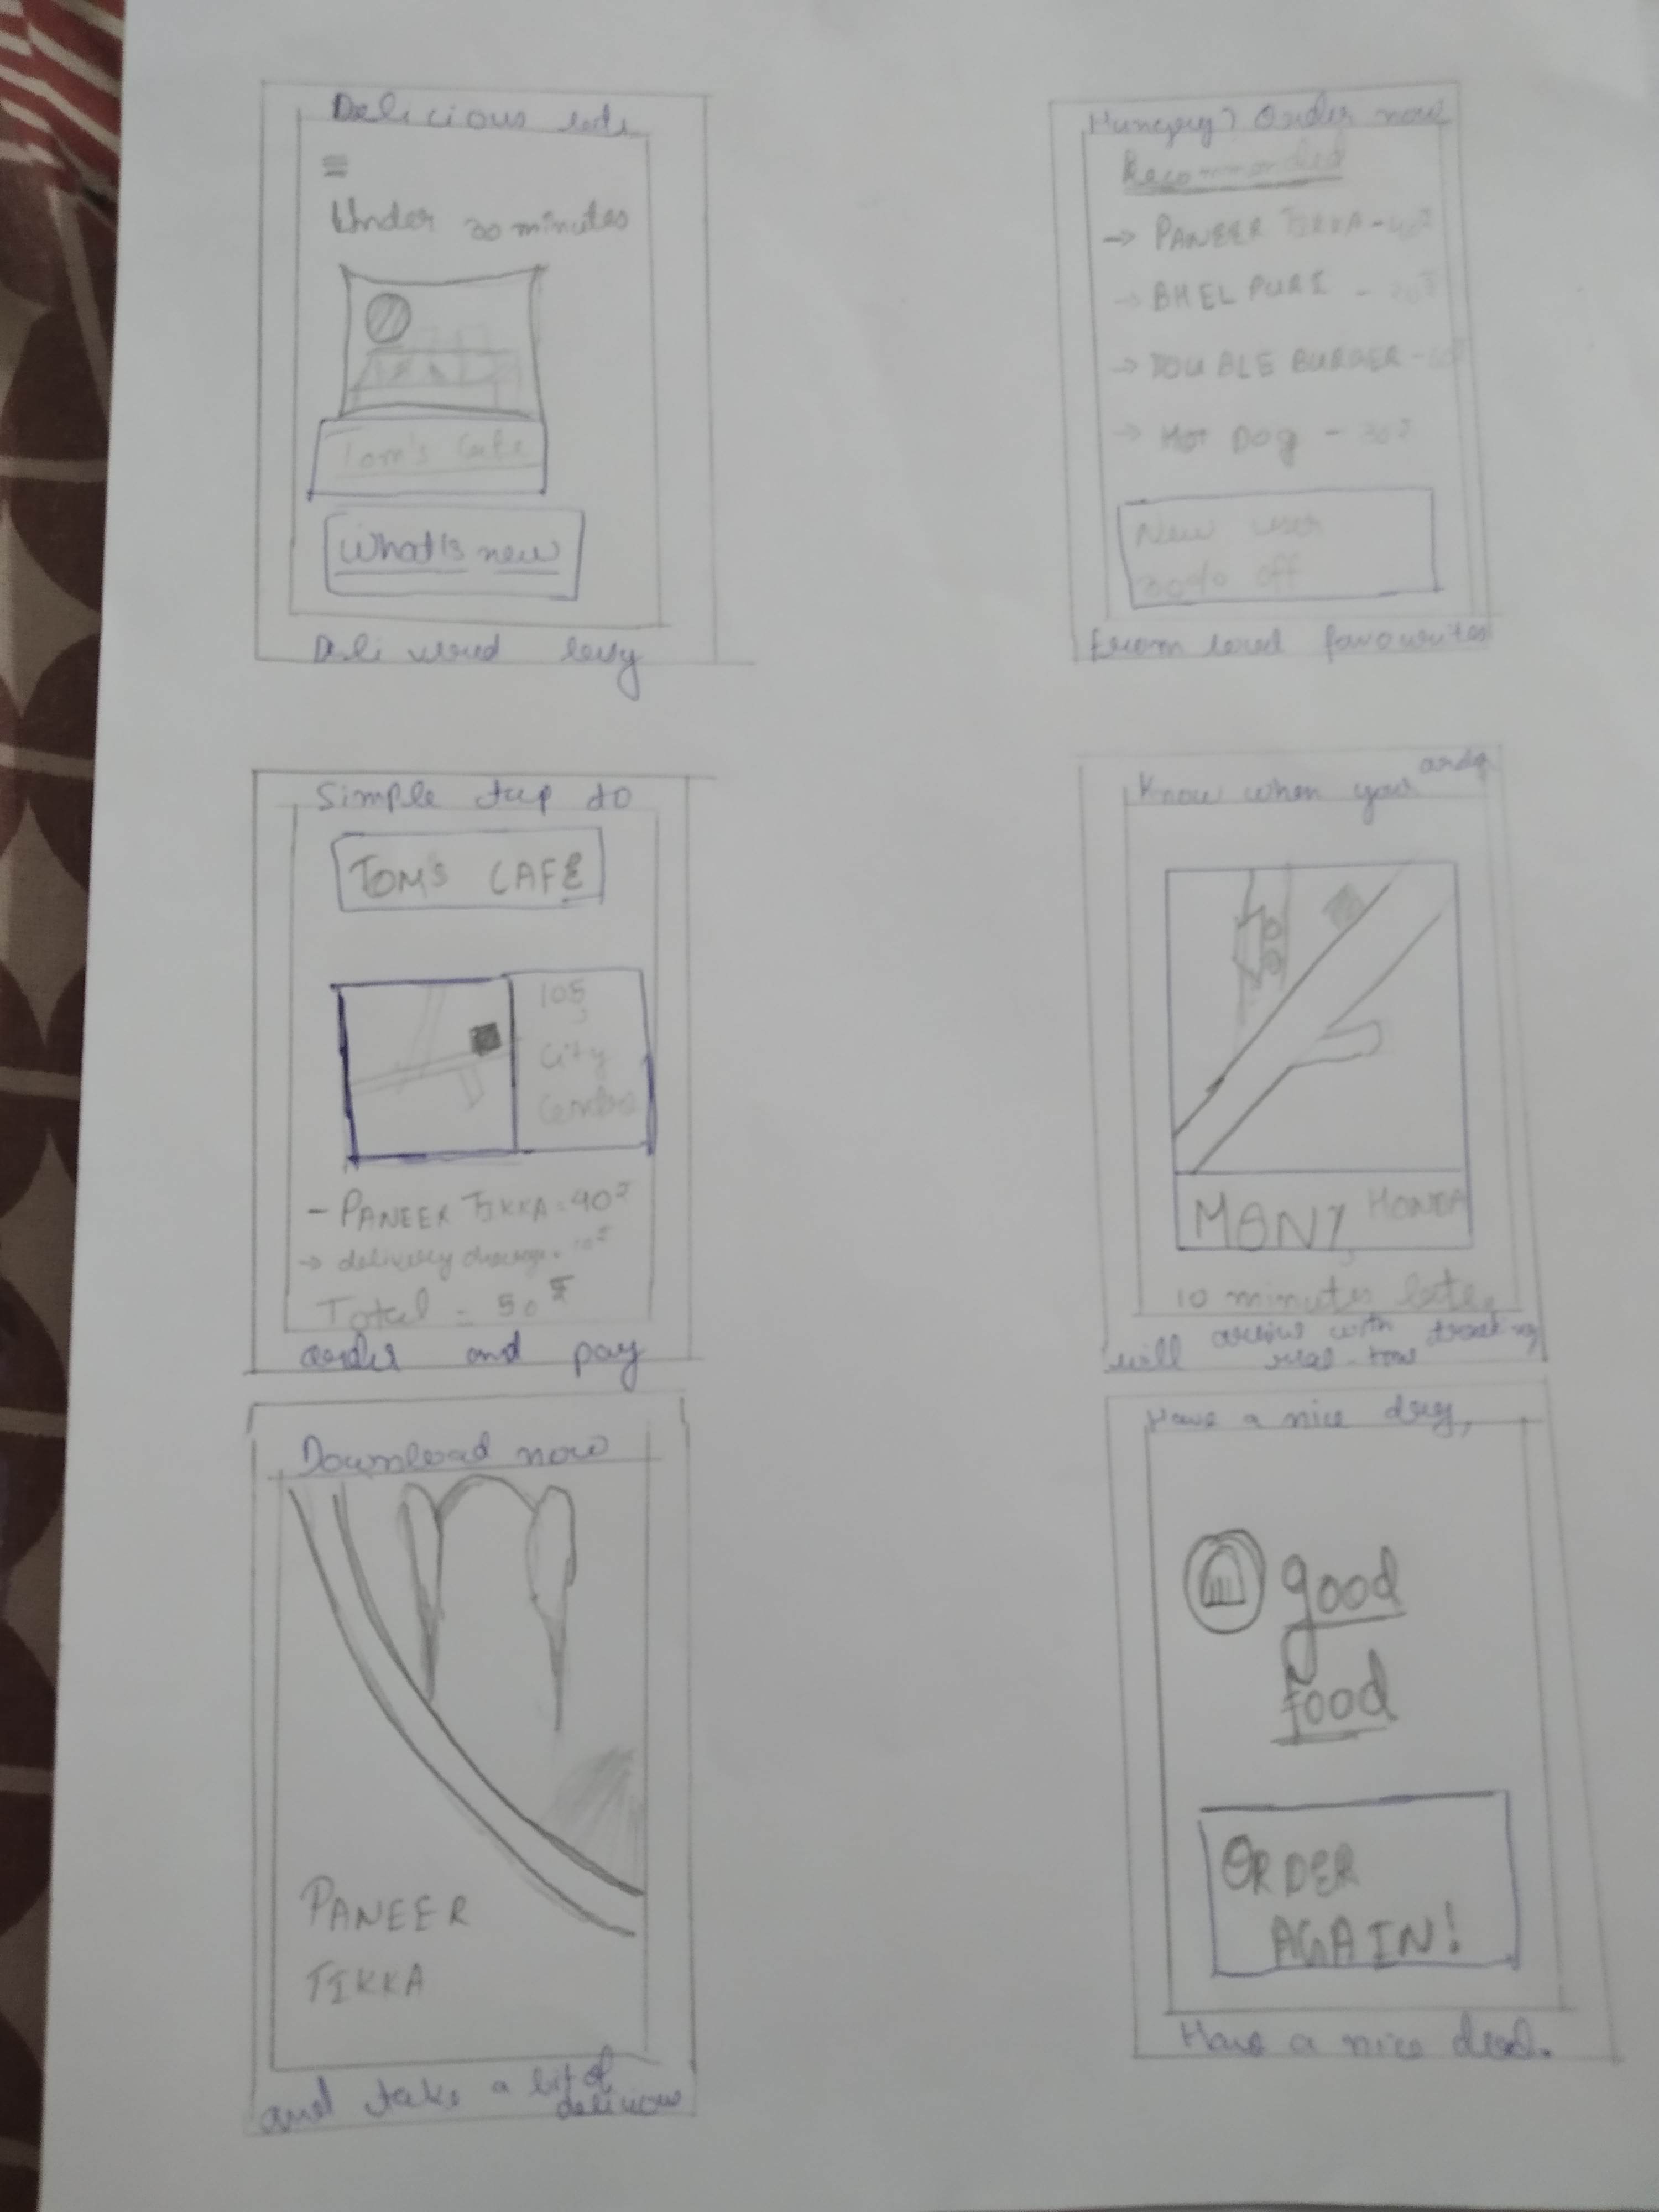 Delicious eats
Under 30 minutes
Tom's Cafe
What's new
Delivered
Hungry? Order now
Recommended
→ PANEER TIKKA -
→ BHEL PURI -
→ DOUBLE BURGER -
→ HOT Dog - 30₹
New user
30% off
From loved favourites
Simple tap to
TOM'S CAFE
105,
City
Centre
- PANEER TIKKA - 40₹
→ delivery charge - 10₹
Total = 50₹
order and pay
Know when your order
HONDA
10 minutes late.
will arrive with tracking
Download now
PANEER
TIKKA
and take a bit of
delicious
Have a nice day,
good
food
ORDER
AGAIN!
Have a nice deal.